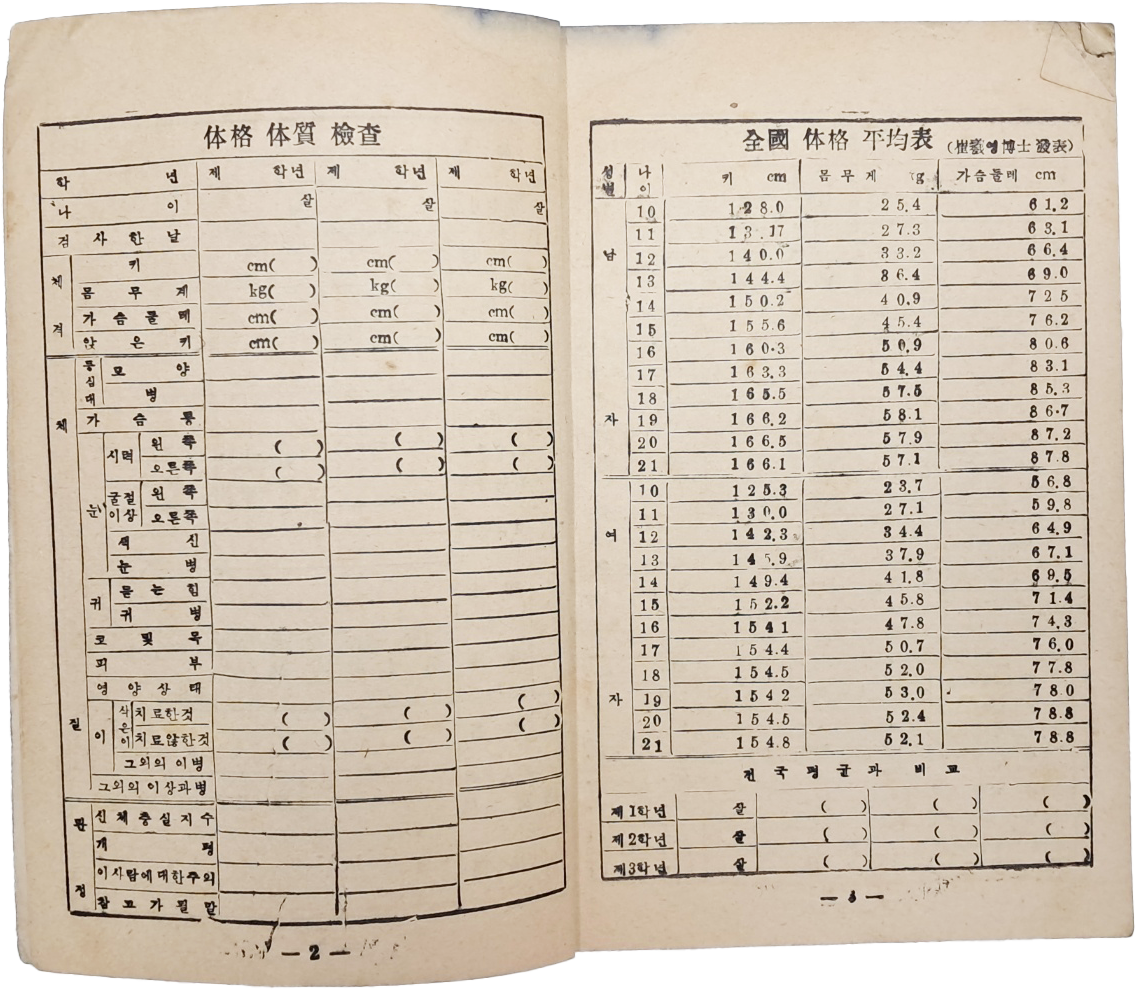 体格 体質 檢査
학 년 제 학년 제 학년 제 학년
나 이 살 살 살
검 사 한 날
체 격
키 cm( ) cm( ) cm( )
몸 무 게 kg( ) kg( ) kg( )
가 슴 둘 레 cm( ) cm( ) cm( )
앉 은 키 cm( ) cm( ) cm( )
체 질
등심대 모 양
병
가 슴 통
눈 시력 왼 쪽 ( ) ( ) ( )
오른쪽 ( ) ( ) ( )
굴절이상 왼 쪽
오른쪽
색 신
눈 병
귀 듣 는 힘
귀 병
코 및 목
피 부
영 양 상 태
이 삭은이 치료한것 ( ) ( ) ( )
치료않한것 ( ) ( ) ( )
그외의 이병
그외의 이상과병
판 정
신 체 충 실 지 수
개 평
이사람에대한주의
참 고 가 될 말
— 2 —
全國 体格 平均表 (崔 영博士 發表)
성별 나이 키 cm 몸 무 게 g 가슴둘레 cm
남 자
10 128.0 25.4 61.2
11 13.17 27.3 63.1
12 140.0 33.2 66.4
13 144.4 36.4 69.0
14 150.2 40.9 725
15 155.6 45.4 76.2
16 160.3 50.9 80.6
17 163.3 54.4 83.1
18 165.5 57.5 85.3
19 166.2 58.1 86.7
20 166.5 57.9 87.2
21 166.1 57.1 87.8
여 자
10 125.3 23.7 56.8
11 130.0 27.1 59.8
12 142.3 34.4 64.9
13 37.9 67.1
14 149.4 41.8 69.5
15 152.2 45.8 71.4
16 1541 47.8 74.3
17 154.4 50.7 76.0
18 154.5 52.0 77.8
19 1542 53.0 78.0
20 154.5 52.4 78.8
21 154.8 52.1 78.8
전 국 평 균 과 비 교
제1학년 살 ( ) ( ) ( )
제2학년 살 ( ) ( ) ( )
제3학년 살 ( ) ( ) ( )